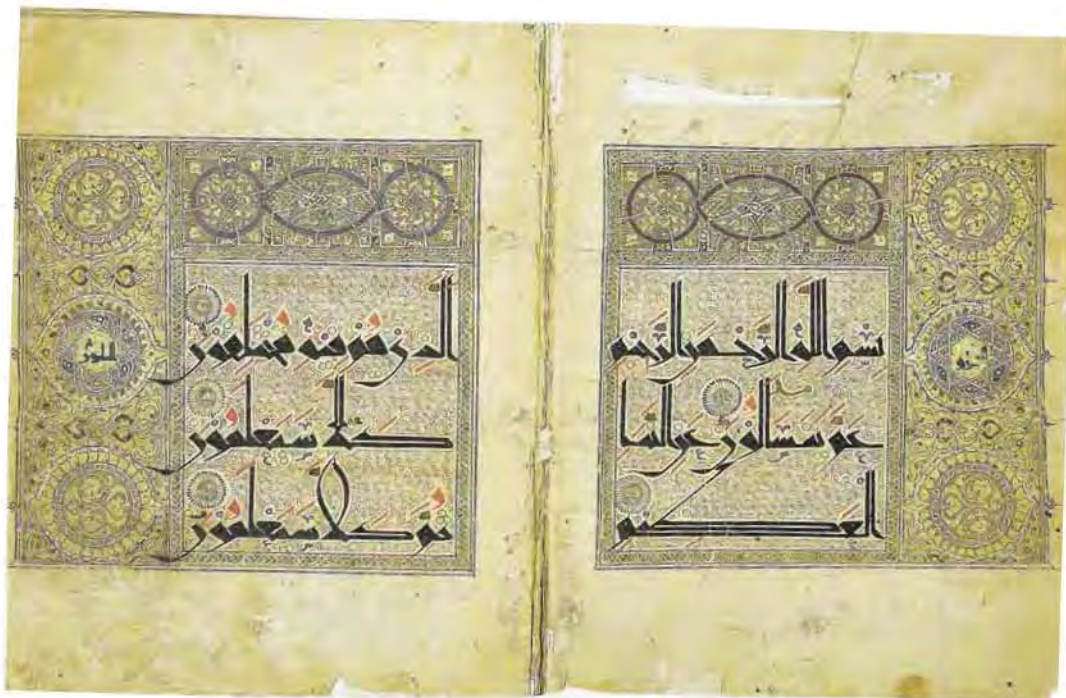 بسم الله الرحمن الرحيم
عم يتساءلون عن النبإ
العظيم
الذي هم فيه مختلفون
كلا سيعلمون
ثم كلا سيعلمون